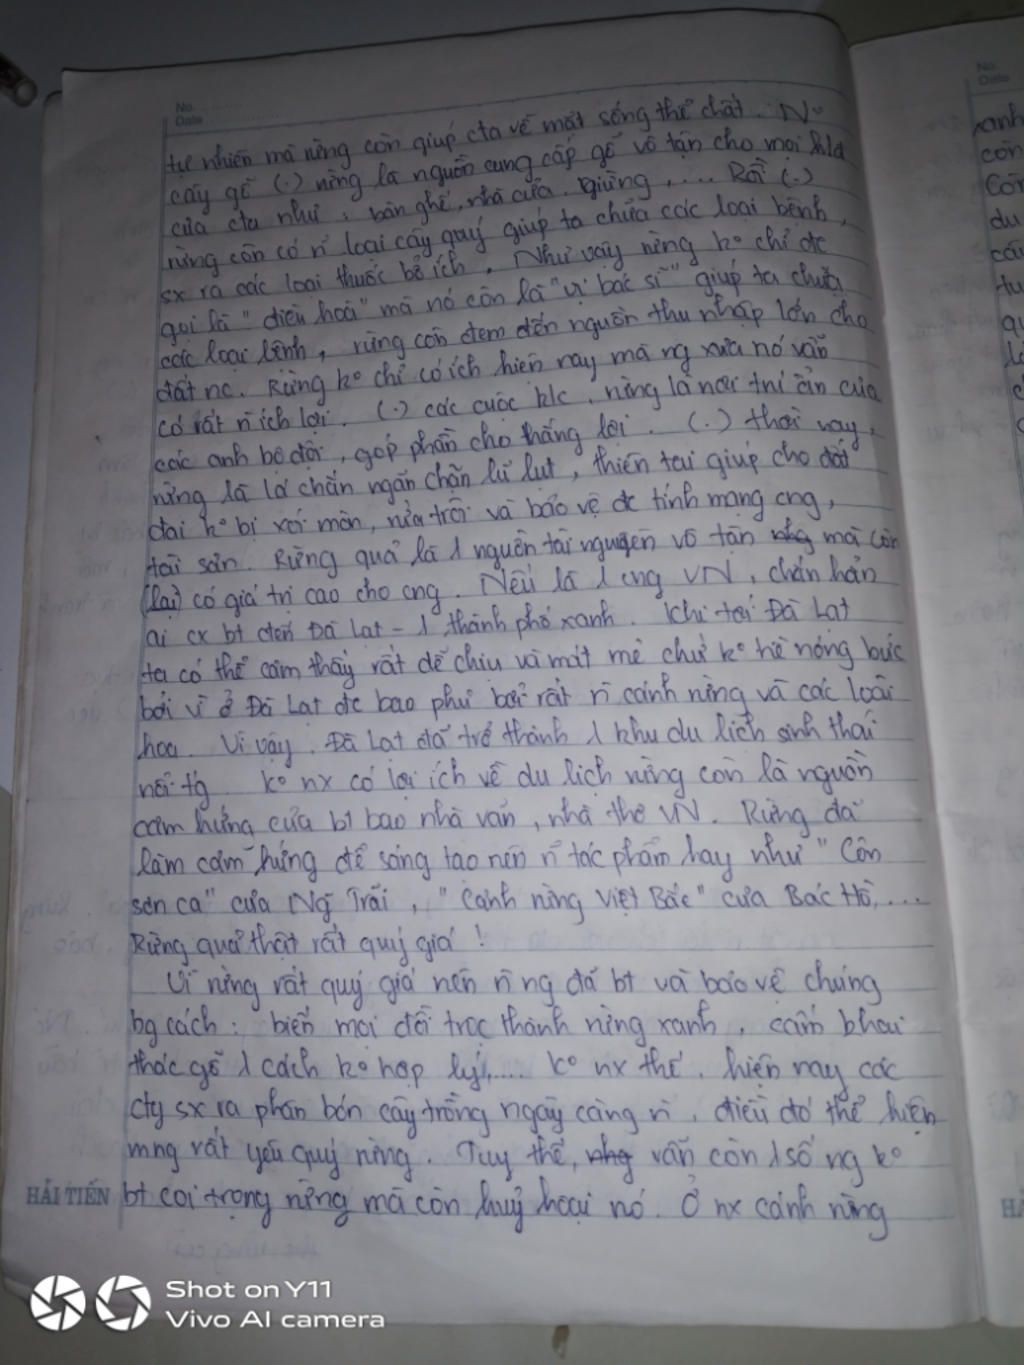 No.
Date
tự nhiên mà rừng còn giúp cta về mặt sống thể chất. N~
cây gỗ (.) rừng là nguồn cung cấp gỗ vô tận cho mọi
của cta như: bàn ghế, nhà cửa, giường, .... Rồi (.)
rừng còn có n~ loại cây quý giúp ta chữa các loại bệnh,
sx ra các loại thuốc bổ ích. Như vậy rừng ko chỉ đc
gọi là "điều hoà" mà nó còn là "vị bác sĩ" giúp ta chữa
các loại bệnh, rừng còn đem đến nguồn thu nhập lớn cho
đất nc. Rừng ko chỉ có ích hiện nay mà ng xưa nó vẫn
có rất n~ ích lợi. (.) các cuộc k/c, rừng là nơi trú ẩn của
các anh bộ đội, góp phần cho thắng lợi. (.) thời nay,
rừng là lá chắn ngăn chặn lũ lụt, thiên tai giúp cho đất
đai ko bị xói mòn, rửa trôi và bảo vệ đc tính mạng cng,
tài sản. Rừng quả là 1 nguồn tài nguyên vô tận nhg mà còn
(lại) có giá trị cao cho cng. Nếu là 1 cng VN, chắn hẳn
ai cx bt đến Đà Lạt - 1 thành phố xanh. Khi tới Đà Lạt
ta có thể cảm thấy rất dễ chịu và mát mẻ chứ ko hề nóng bức
bởi vì ở Đà Lạt đc bao phủ bởi rất n~ cánh rừng và các loài
hoa. Vì vậy, Đà Lạt đã trở thành 1 khu du lịch sinh thái
nổi tg. Ko nx có lợi ích về du lịch rừng còn là nguồn
cảm hứng của bt bao nhà văn, nhà thơ VN. Rừng đã
làm cảm hứng để sáng tạo nên n~ tác phẩm hay như "Côn
sơn ca" của Ng~ Trãi, "Cảnh rừng Việt Bắc" của Bác Hồ, ...
Rừng quả thật rất quý giá!
Vì rừng rất quý giá nên n~ ng đã bt và bảo vệ chúng
bg cách: biến mọi đồi trọc thành rừng xanh, cấm khai
thác gỗ 1 cách ko hợp lý,.... Ko nx thế, hiện nay các
cty sx ra phân bón cây trồng ngày càng n~, điều đó thể hiện
mng rất yêu quý rừng. Tuy thế, nhg vẫn còn 1 số ng ko
bt coi trọng rừng mà còn huỷ hoại nó. Ở nx cánh rừng
HẢI TIẾN
Shot on Y11
Vivo AI camera